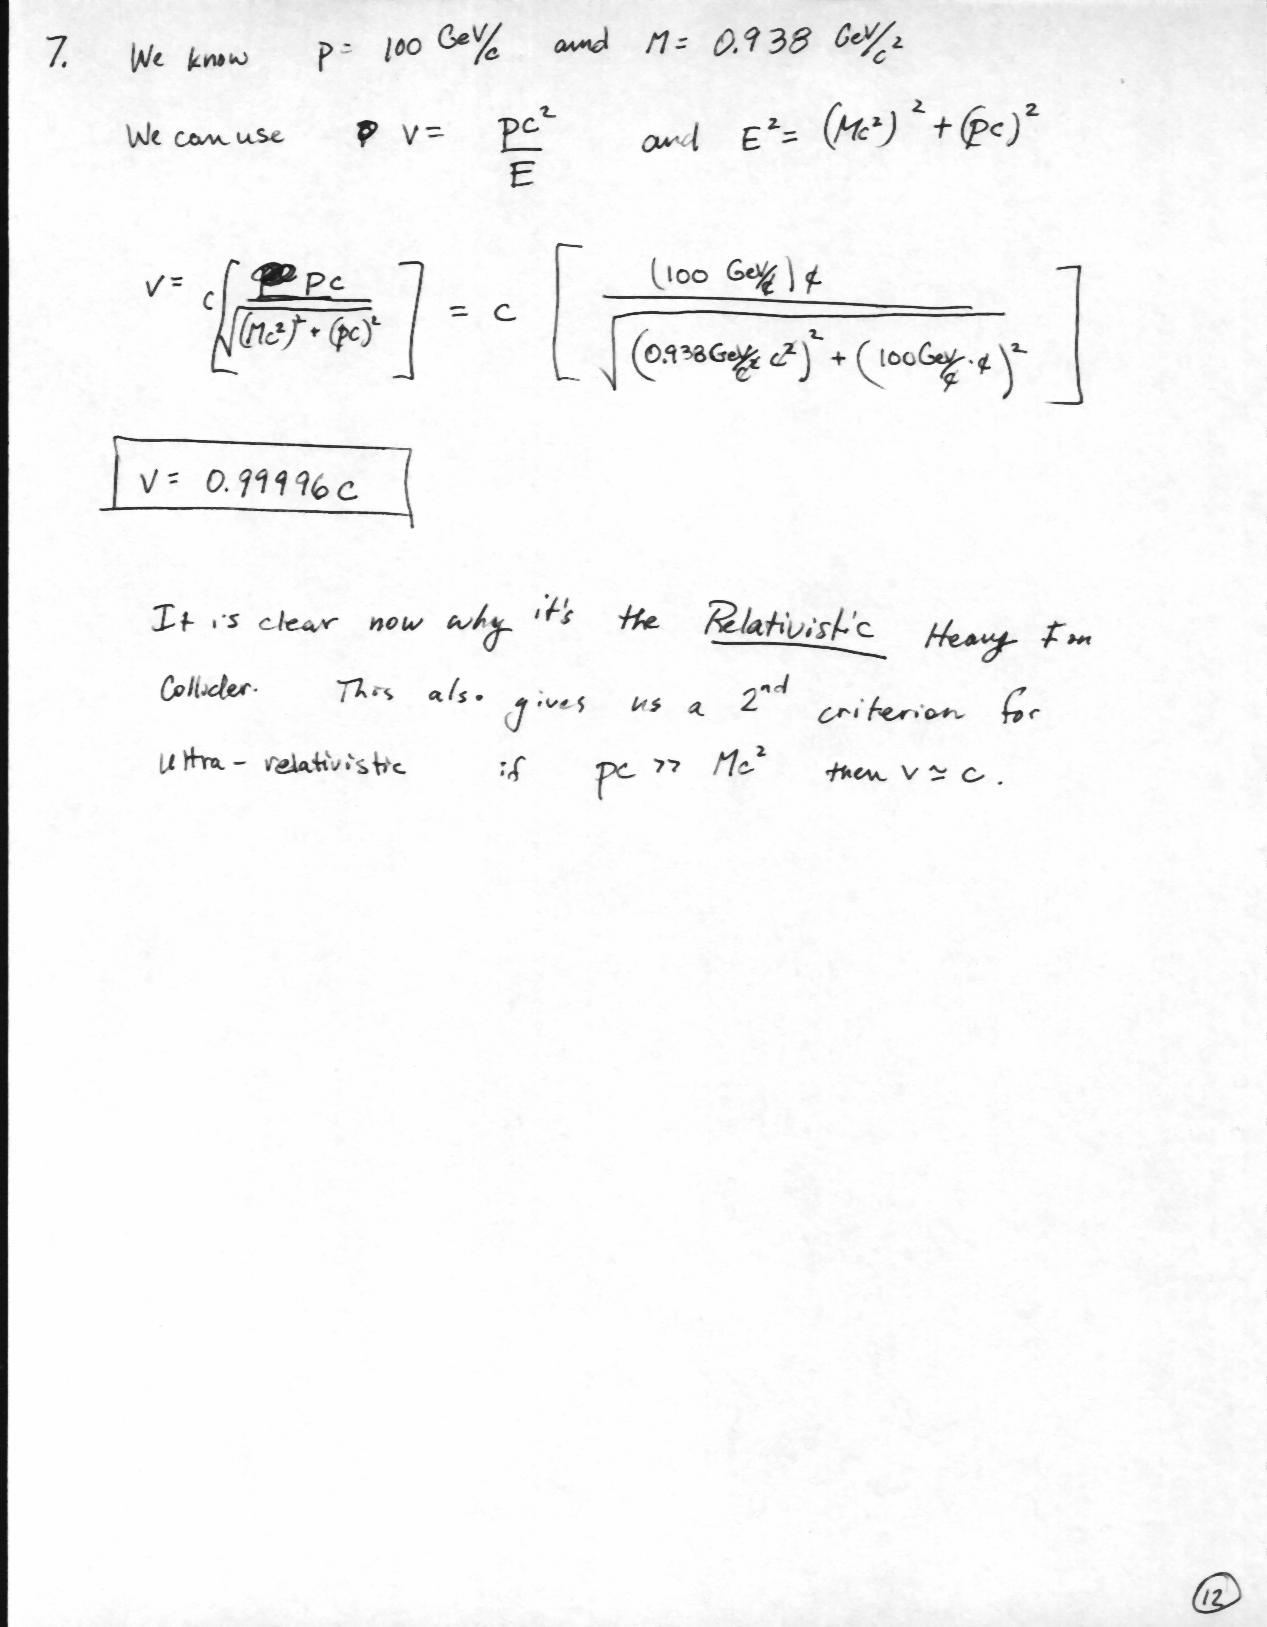 7. We know p = 100 GeV/c and M = 0.938 GeV/c²
We can use v = pc²/E and E² = (Mc²)² + (pc)²
v = c [ pc / √((Mc²)² + (pc)²) ] = c [ (100 GeV/c) c / √((0.938 GeV/c² c²)² + (100 GeV/c · c)²) ]
v = 0.99996 c
It is clear now why it's the Relativistic Heavy Ion
Collider. This also gives us a 2nd criterion for
ultra-relativistic if pc >> Mc² then v ≃ c.
12